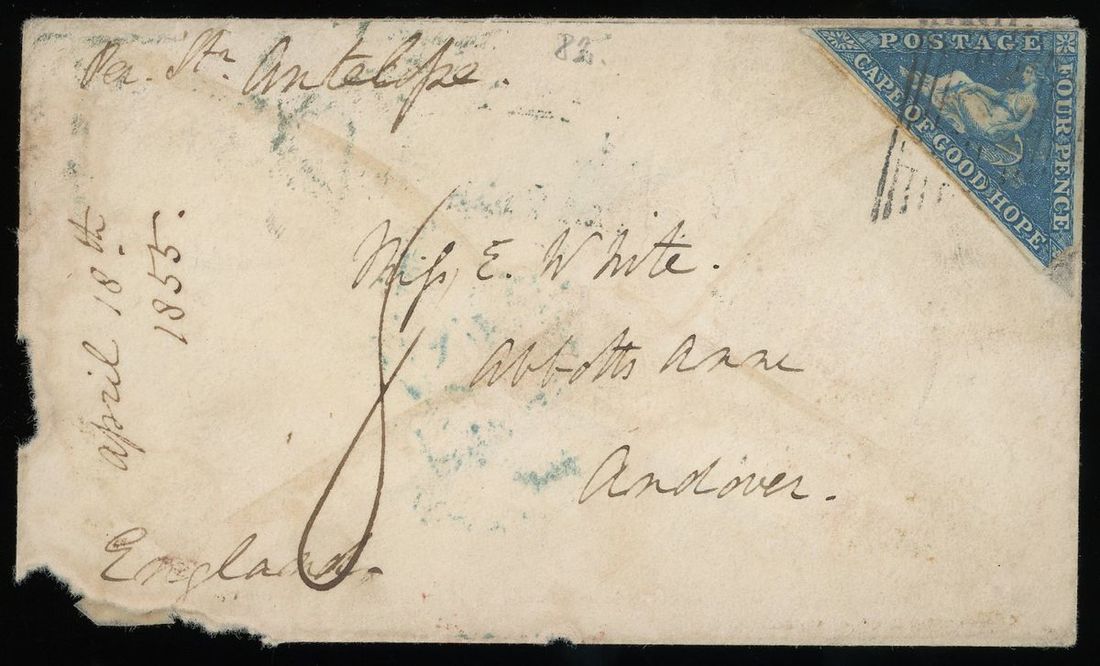 Per. Str. Antelope.
82.
POSTAGE
CAPE OF GOOD HOPE
FOUR PENCE
april 18th
1855.
Miss E. White.
Abbotts Anne
Andover.
England.
8